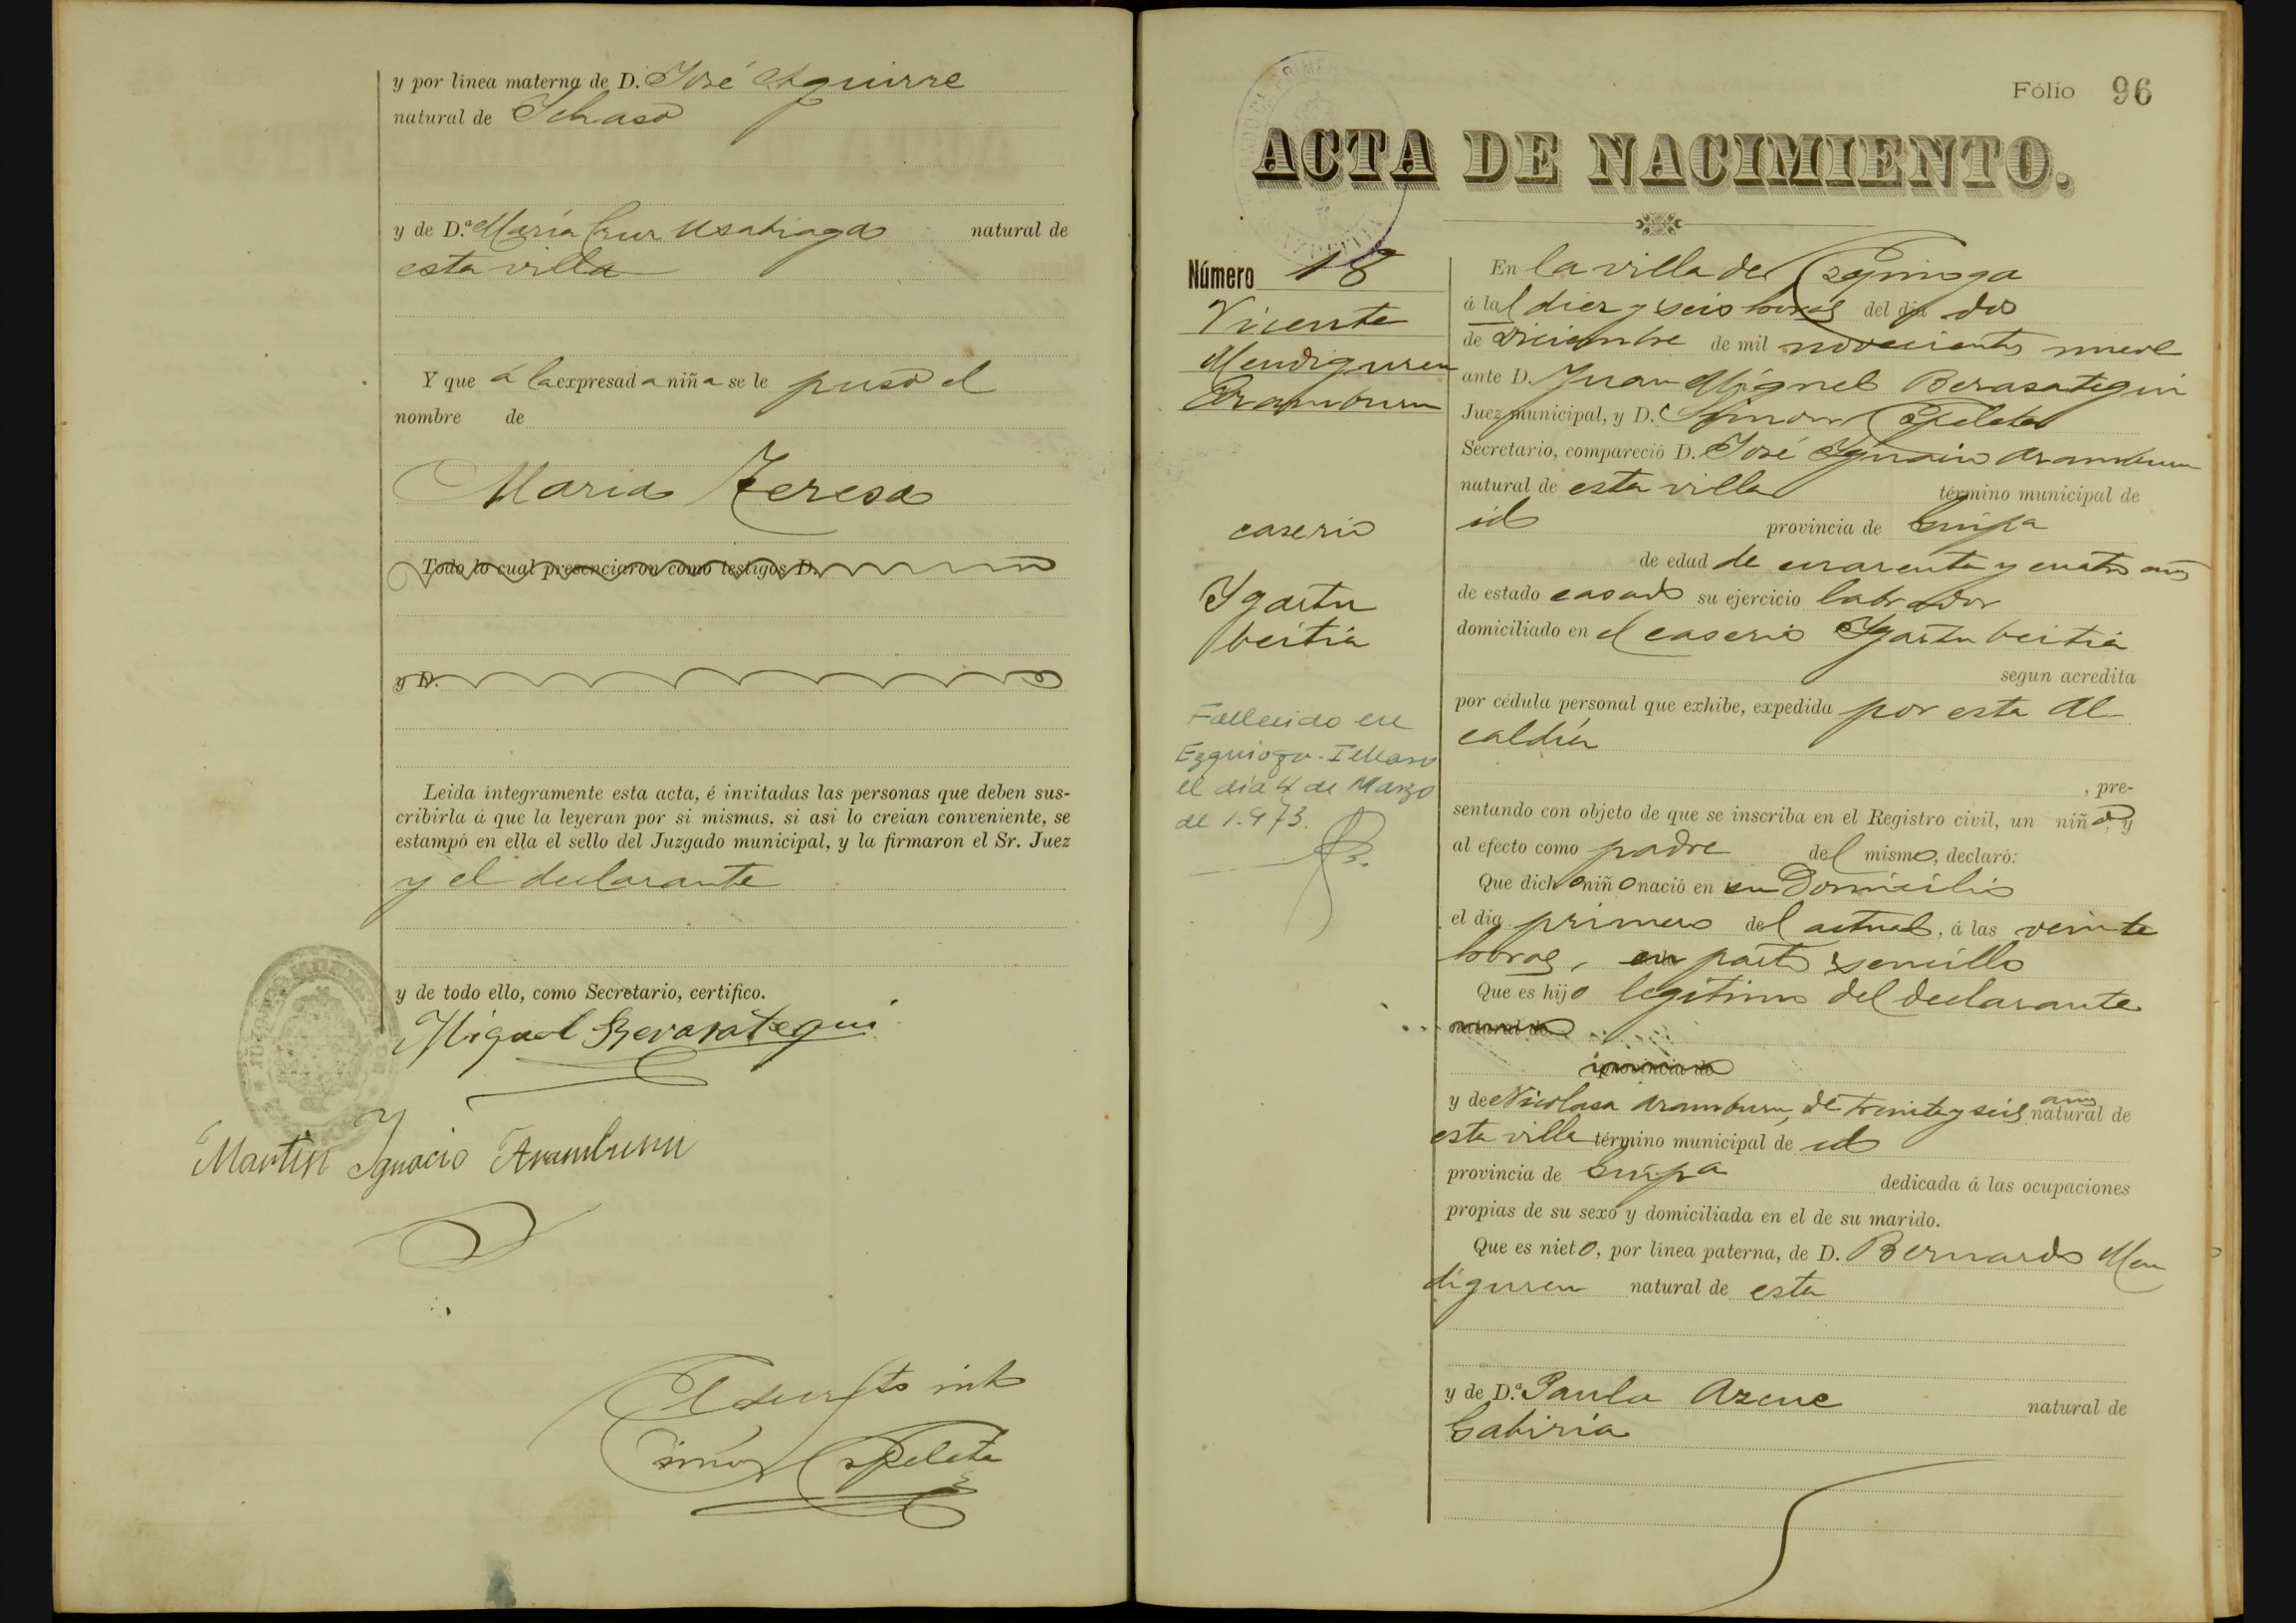 y por línea materna de D. José Aguirre
natural de Ichaso
y de D.ª María Cruz Usabiaga natural de
esta villa
Y que á la expresada niña se le puso el
nombre de
Maria Teresa
Todo lo cual presenciaron como testigos D.
y D.
Leida íntegramente esta acta, é invitadas las personas que deben sus-
cribirla á que la leyeran por si mismas, si asi lo creian conveniente, se
estampó en ella el sello del Juzgado municipal, y la firmaron el Sr. Juez
y el declarante
y de todo ello, como Secretario, certifico.
Miguel Berasategui
Martin Ignacio Aramburu
El int
Simon Espeleta
Fólio 96
ACTA DE NACIMIENTO.
Número 18
Vicente
Mendiguren
Aramburu
caserio
Ygartu
beitia
Fallecido en
Ezquioga-Ichaso
el día 4 de Marzo
de 1.973.
En la villa de Ezquioga
á las diez y seis horas del dia dos
de Diciembre de mil novecientos nueve
ante D. Juan Miguel Berasategui
Juez municipal, y D. Simon Espeleta
Secretario, compareció D. José Ygnacio Aramburu
natural de esta villa término municipal de
id provincia de Guipa
de edad de cuarenta y cuatro años
de estado casado su ejercicio labrador
domiciliado en el caserio Ygartubeitia
segun acredita
por cédula personal que exhibe, expedida por esta Al
caldía
, pre-
sentando con objeto de que se inscriba en el Registro civil, un niño, y
al efecto como padre del mismo, declaró:
Que dicho niño nació en su Domicilio
el dia primero del actual, á las veinte
horas, en parto sencillo
Que es hijo legítimo del declarante
natural de
provincia de
y de Nicolasa Aramburu, de treinta y seis años natural de
esta villa término municipal de id
provincia de Guipa dedicada á las ocupaciones
propias de su sexo y domiciliada en el de su marido.
Que es nieto, por línea paterna, de D. Bernardo Men
diguren natural de esta
y de D.ª Paula Azcue natural de
Gabiria